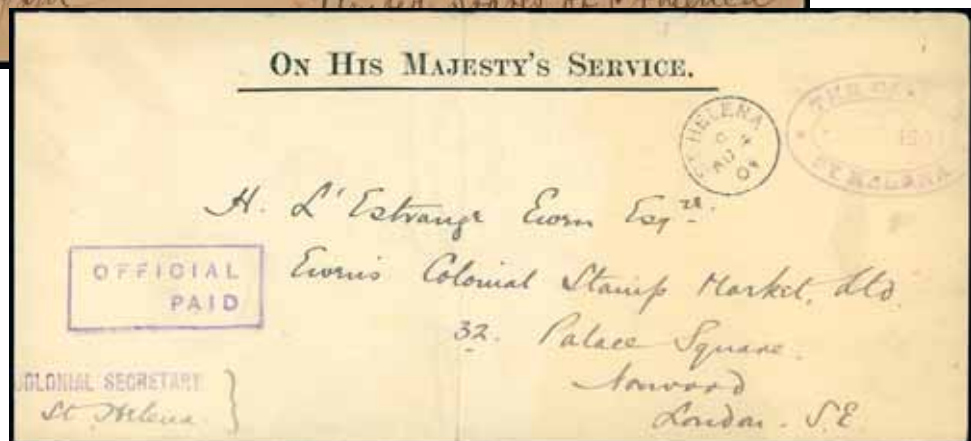 United States of America
ON HIS MAJESTY'S SERVICE.
ST HELENA
C
AU 4
04
THE CA
ST HELENA
H. L'Estrange Ewen Esqre.
Ewen's Colonial Stamp Market, Ltd.
32. Palace Square.
Norwood
London. S.E.
OFFICIAL
PAID
COLONIAL SECRETARY
St Helena